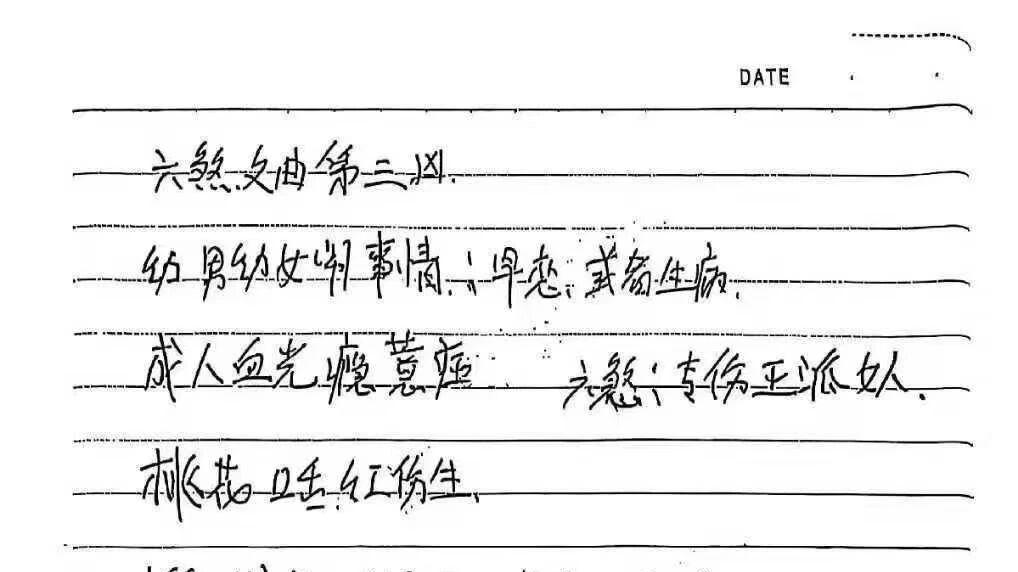 DATE
六煞文曲第三凶.
幼男幼女 事情,:早恋,或者生病.
成人血光 六煞:专伤正派女人.
桃花口舌,红伤生.